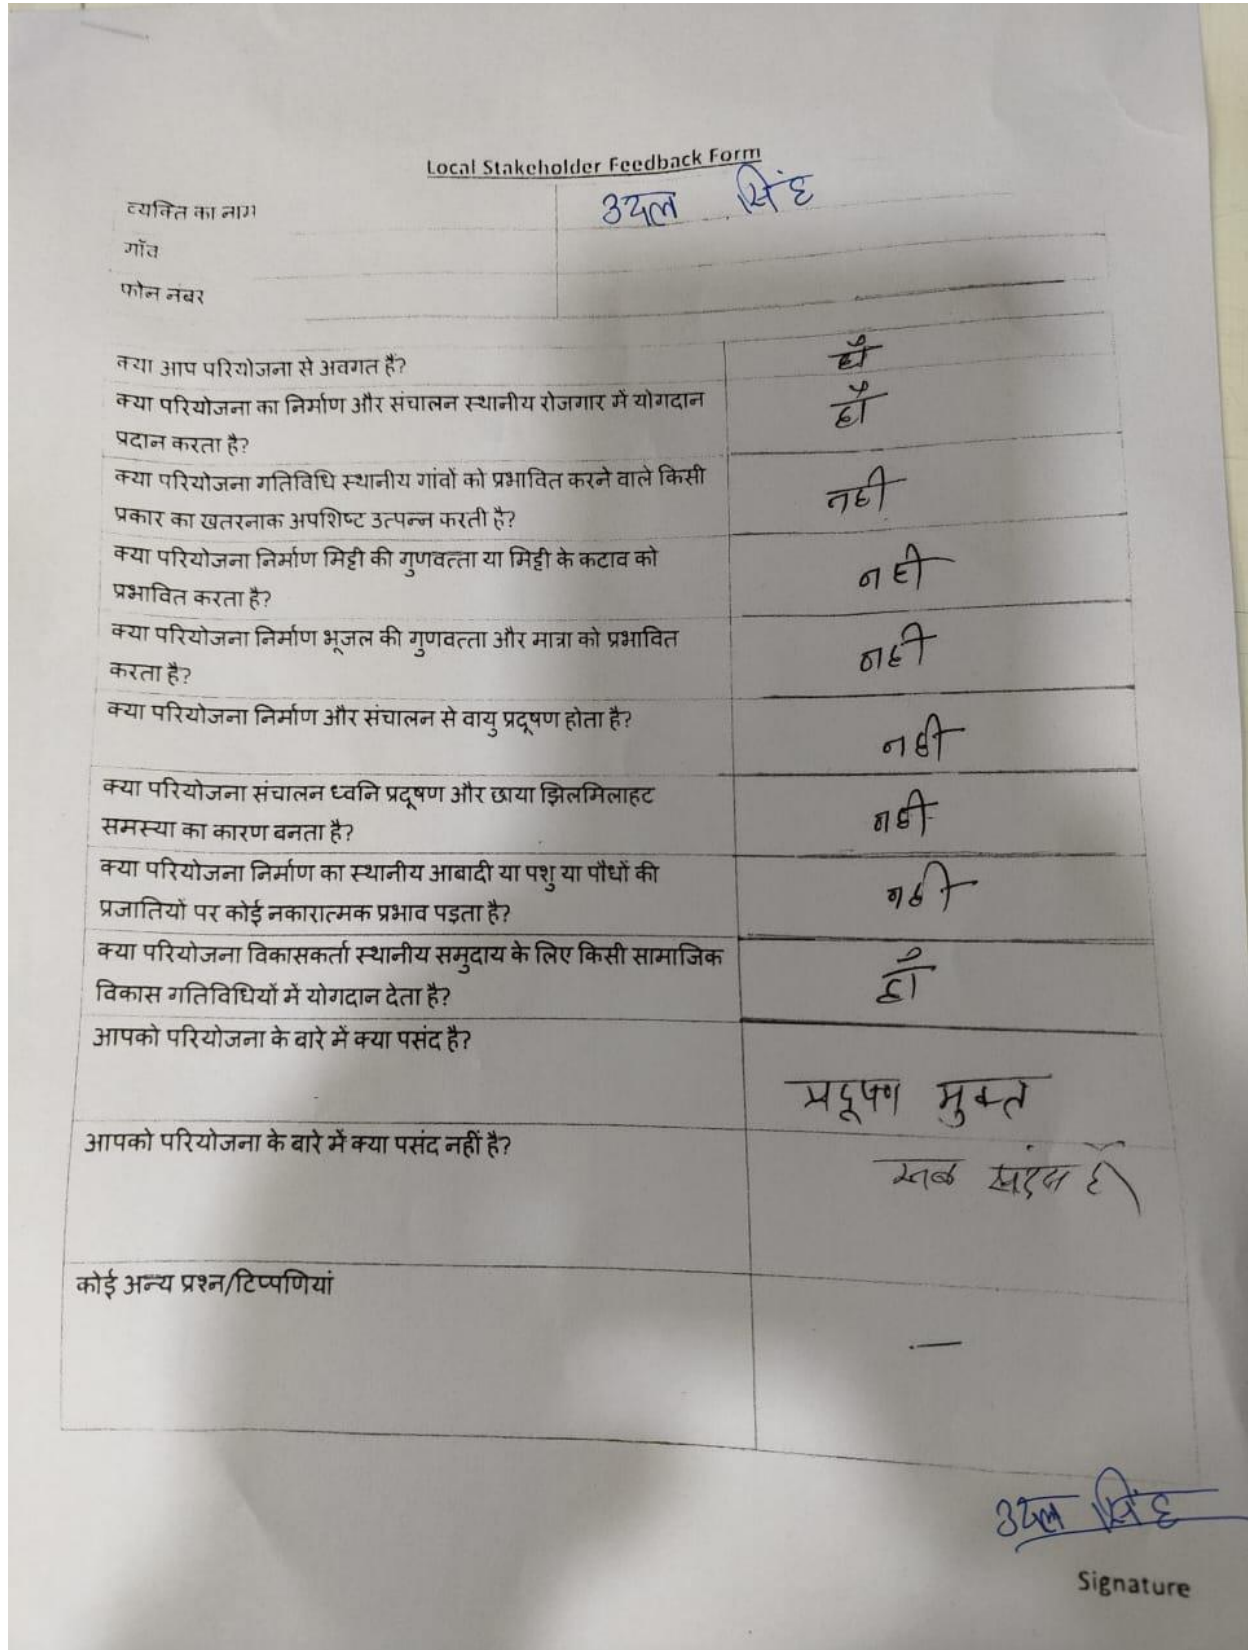 Local Stakeholder Feedback Form
व्यक्ति का नाम उदल सिंह
गाँव
फोन नंबर
क्या आप परियोजना से अवगत हैं? हाँ
क्या परियोजना का निर्माण और संचालन स्थानीय रोजगार में योगदान हाँ
प्रदान करता है?
क्या परियोजना गतिविधि स्थानीय गांवों को प्रभावित करने वाले किसी नही
प्रकार का खतरनाक अपशिष्ट उत्पन्न करती है?
क्या परियोजना निर्माण मिट्टी की गुणवत्ता या मिट्टी के कटाव को नही
प्रभावित करता है?
क्या परियोजना निर्माण भूजल की गुणवत्ता और मात्रा को प्रभावित नही
करता है?
क्या परियोजना निर्माण और संचालन से वायु प्रदूषण होता है? नही
क्या परियोजना संचालन ध्वनि प्रदूषण और छाया झिलमिलाहट नही
समस्या का कारण बनता है?
क्या परियोजना निर्माण का स्थानीय आबादी या पशु या पौधों की नही
प्रजातियों पर कोई नकारात्मक प्रभाव पड़ता है?
क्या परियोजना विकासकर्ता स्थानीय समुदाय के लिए किसी सामाजिक हाँ
विकास गतिविधियों में योगदान देता है?
आपको परियोजना के बारे में क्या पसंद है?
प्रदूषण मुक्त
आपको परियोजना के बारे में क्या पसंद नहीं है?
कोई अन्य प्रश्न/टिप्पणियां
—
उदल सिंह
Signature